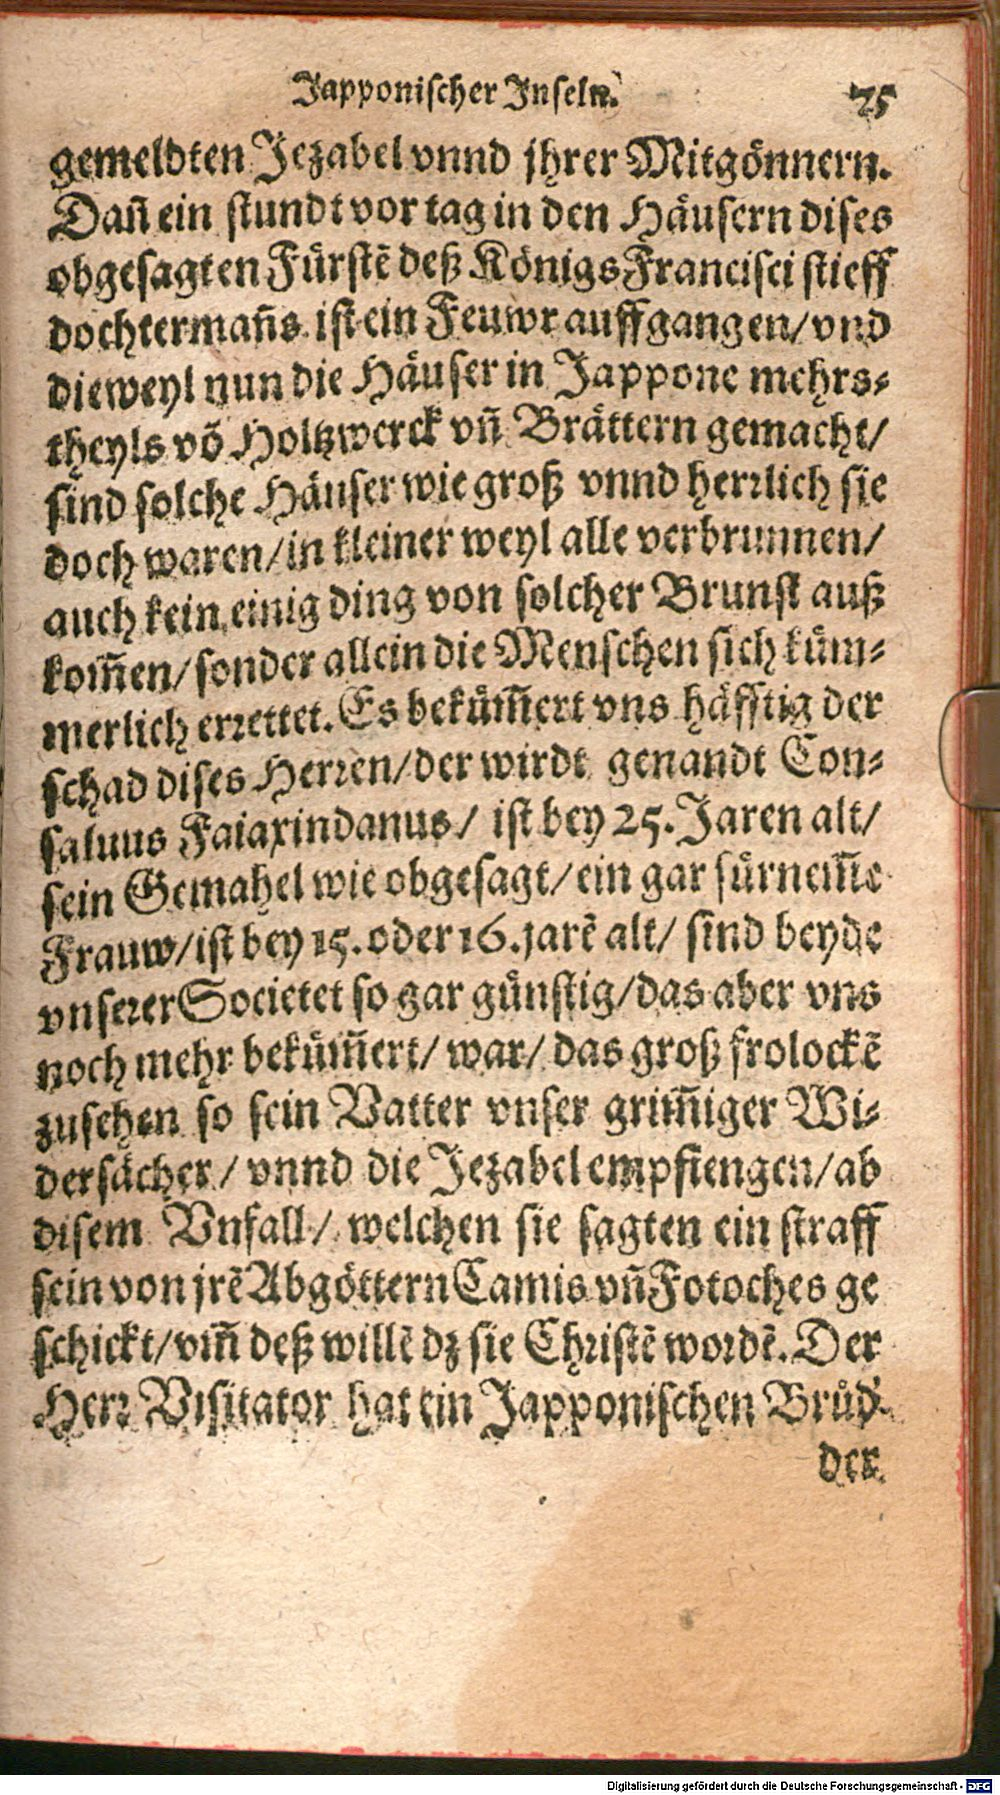 Japponischer Inseln. 75
gemeldten Jezabel vnnd jhrer Mitgönnern.
Dañ ein stundt vor tag in den Häusern dises
obgesagten Fürstẽ deß Königs Francisci stieff
dochtermañs ist ein Feuwr auffgangen/ vnd
dieweyl nun die Häuser in Jappone mehrs⸗
theyls võ Holtzwerck vñ Brättern gemacht/
sind solche Häuser wie groß vnnd herrlich sie
doch waren/ in kleiner weyl alle verbrunnen/
auch kein einig ding von solcher Brunst auß
kom̃en/ sonder allein die Menschen sich küm⸗
merlich errettet. Es beküm̃ert vns häfftig der
schad dises Herren/ der wirdt genandt Con⸗
saluus Faiaxindanus/ ist bey 25. Jaren alt/
sein Gemahel wie obgesagt/ ein gar fürnem̃e
Frauw/ ist bey 15. oder 16. jarẽ alt/ sind beyde
vnserer Societet so gar günstig/ das aber vns
noch mehr beküm̃ert/ war/ das groß frolockẽ
zusehen so sein Vatter vnser grim̃iger Wi⸗
dersächer/ vnnd die Jezabel empfiengen/ ab
disem Vnfall/ welchen sie sagten ein straff
sein von jrẽ Abgöttern Camis vñ Fotoches ge
schickt/ vm̃ deß willẽ dz sie Christẽ wordẽ. Der
Herr Visitator hat ein Japponischen Brůd⸗
der
Digitalisierung gefördert durch die Deutsche Forschungsgemeinschaft - DFG